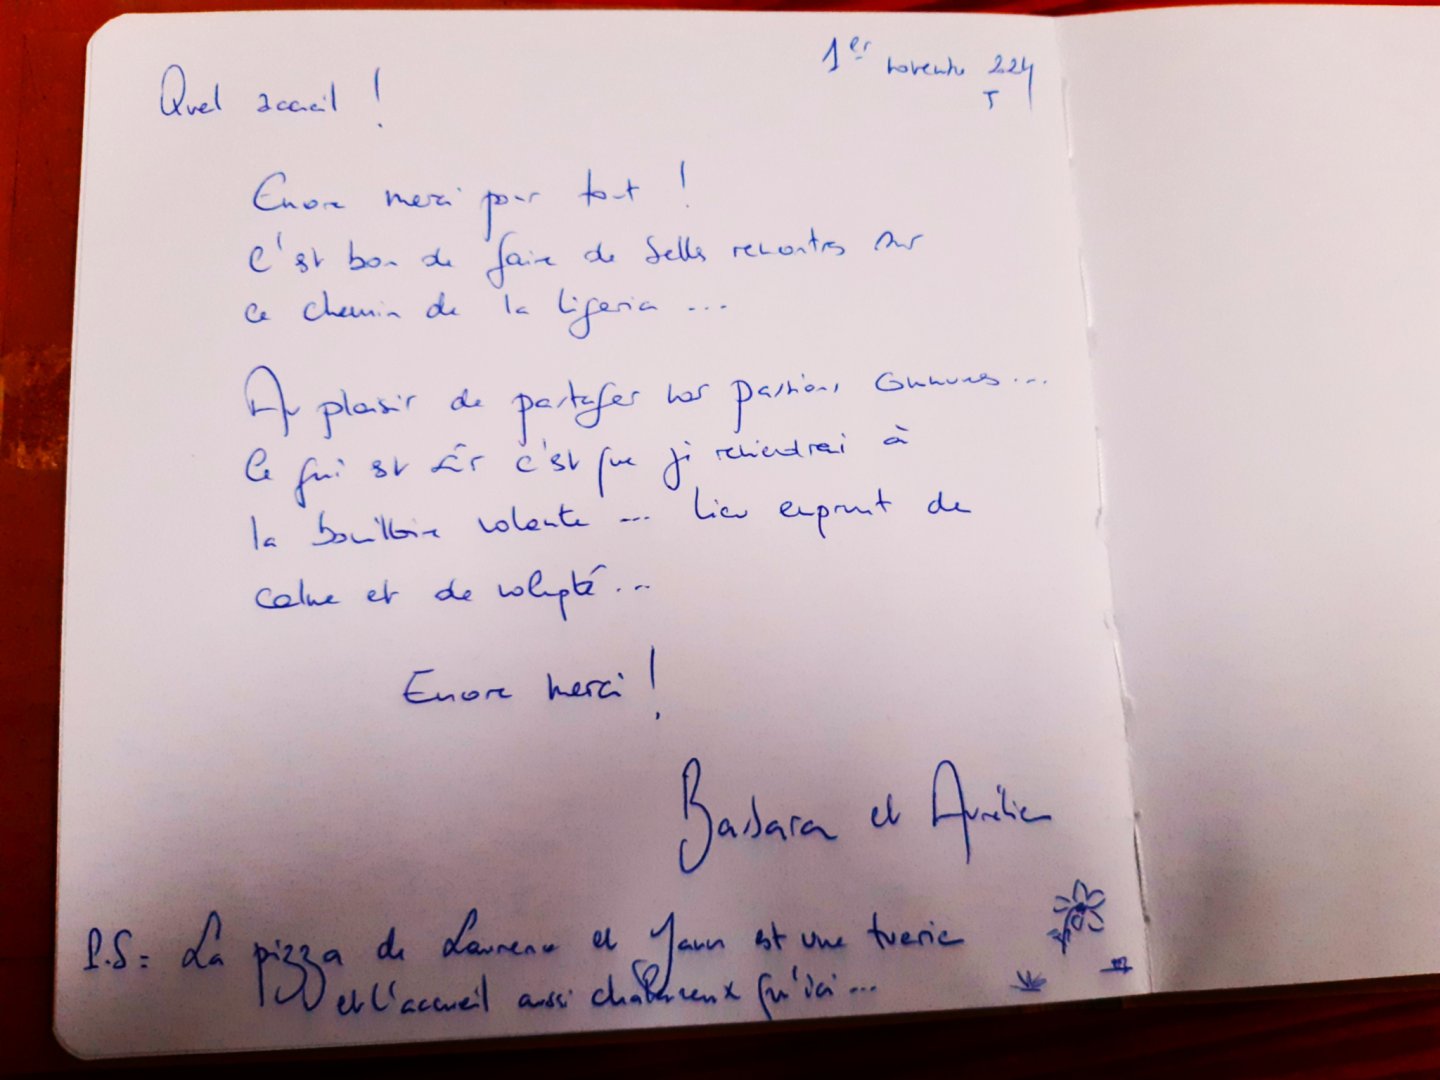 1er novembre 2024
Quel accueil !
Encore merci pour tout !
C'est bon de faire de belles rencontres sur
ce chemin de la Ligeria ...
Au plaisir de partager nos passions communes ...
Ce qui est sûr c'est que je reviendrai à
la bouilloire volante ... lieu empreint de
calme et de volupté ...
Encore merci !
Barbara et Aurélien
P.S : La pizza de Laurence et Yann est une tuerie
et l'accueil aussi chaleureux qu'ici ...